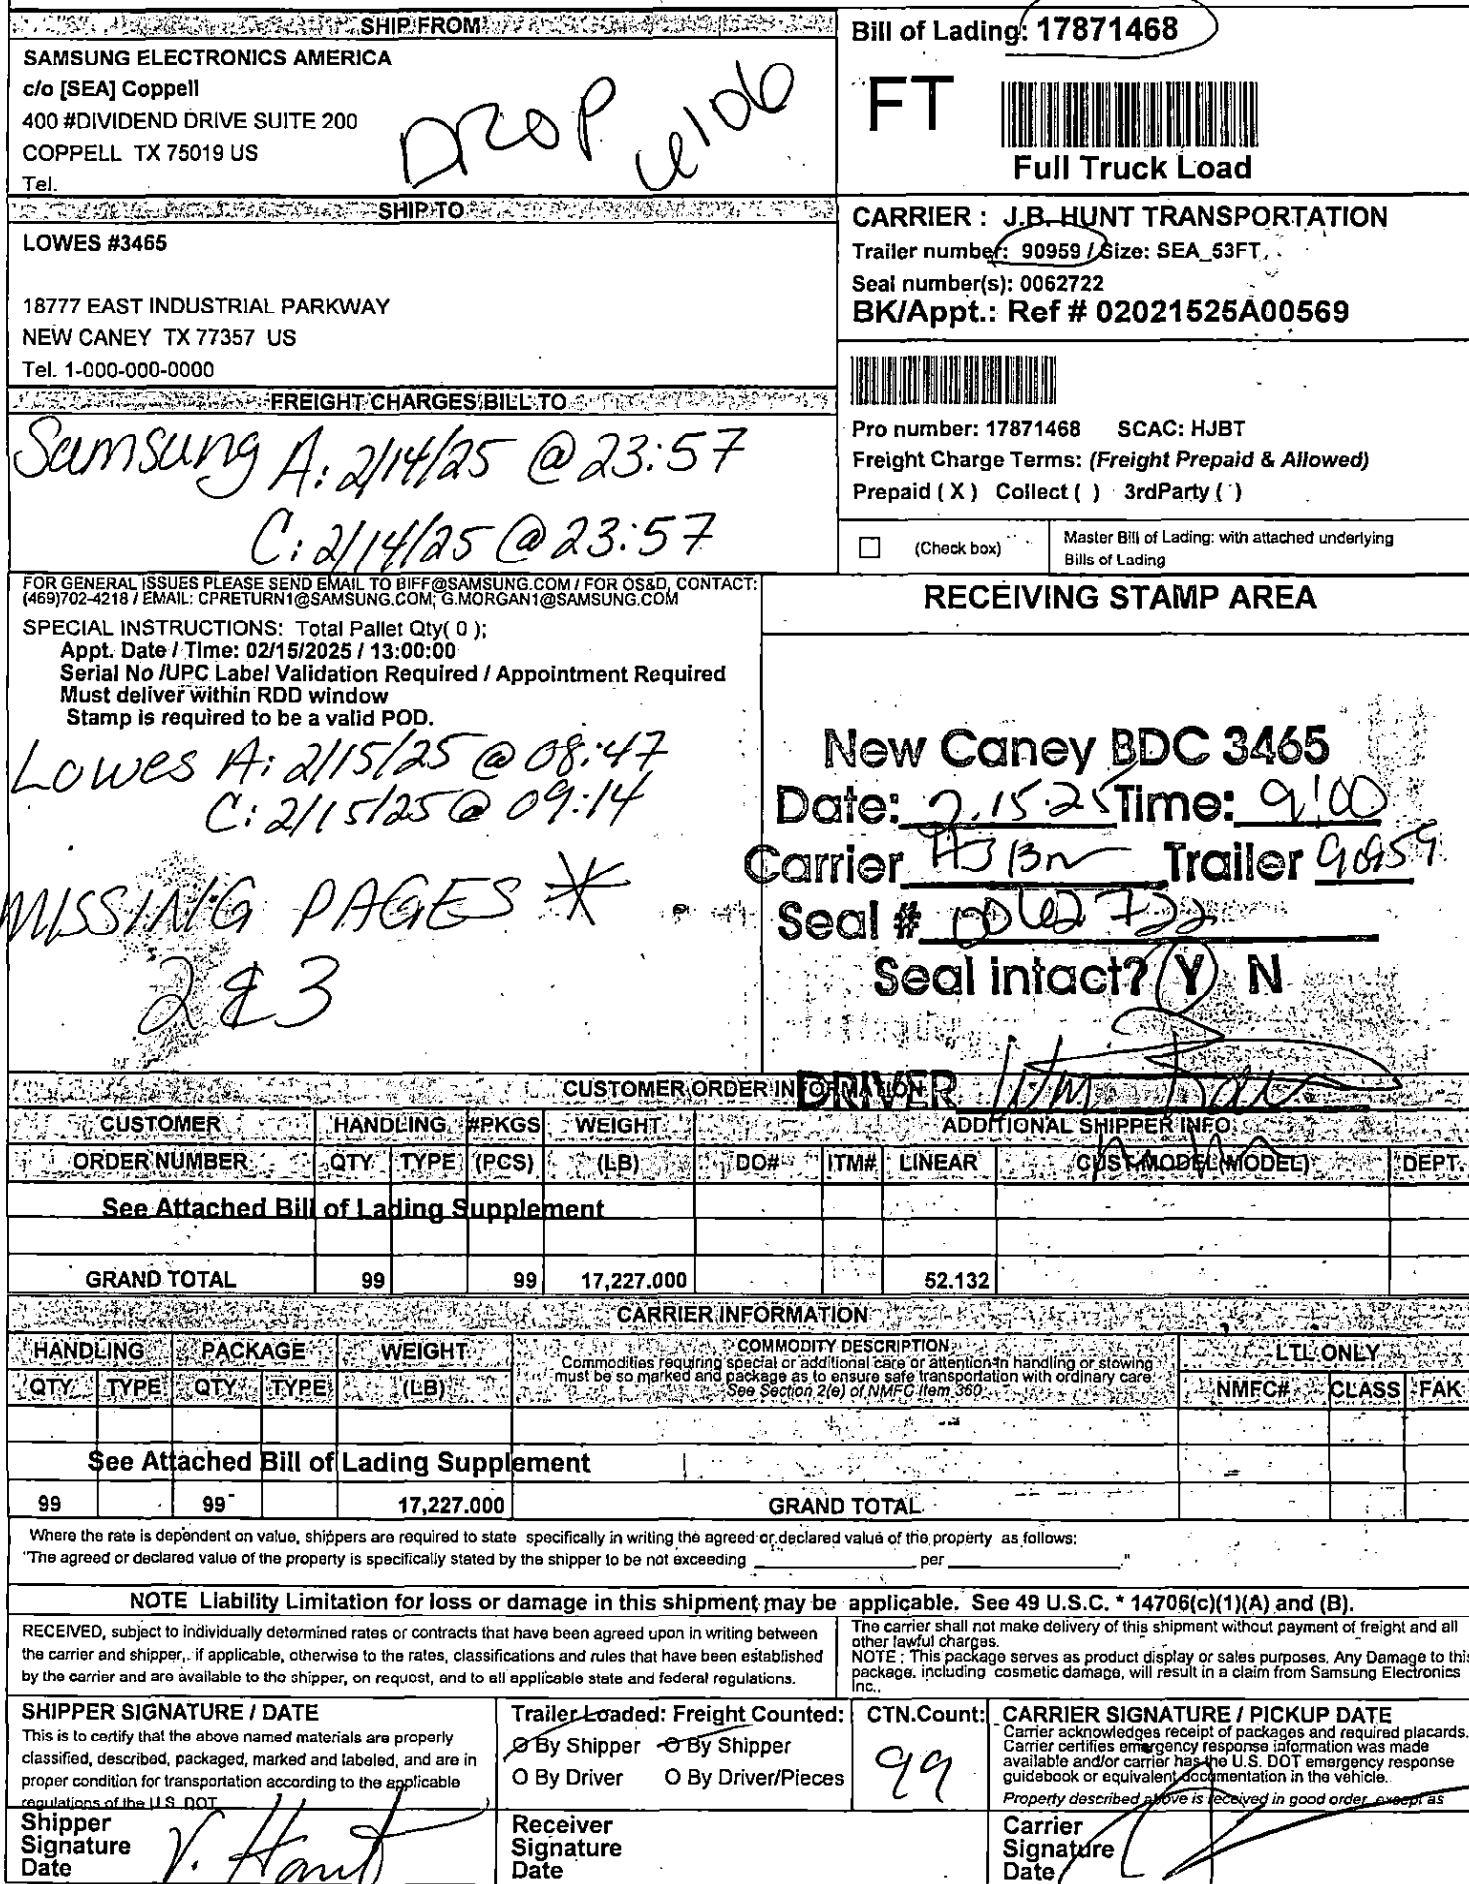 SHIP FROM
SAMSUNG ELECTRONICS AMERICA
c/o [SEA] Coppell
400 #DIVIDEND DRIVE SUITE 200
COPPELL TX 75019 US
Tel.
DROP
Bill of Lading: 17871468
FT
Full Truck Load
SHIP TO
LOWES #3465
18777 EAST INDUSTRIAL PARKWAY
NEW CANEY TX 77357 US
Tel. 1-000-000-0000
CARRIER : J.B. HUNT TRANSPORTATION
Trailer number: 90959 / Size: SEA_53FT
Seal number(s): 0062722
BK/Appt.: Ref # 02021525A00569
FREIGHT CHARGES BILL TO
Samsung A: 2/14/25 @ 23:57
C: 2/14/25 @ 23:57
Pro number: 17871468 SCAC: HJBT
Freight Charge Terms: (Freight Prepaid & Allowed)
Prepaid ( X ) Collect ( ) 3rdParty ( )
(Check box)
Master Bill of Lading: with attached underlying
Bills of Lading
FOR GENERAL ISSUES PLEASE SEND EMAIL TO BIFF@SAMSUNG.COM / FOR OS&D, CONTACT:
(469)702-4218 / EMAIL: CPRETURN1@SAMSUNG.COM; G.MORGAN1@SAMSUNG.COM
SPECIAL INSTRUCTIONS: Total Pallet Qty( 0 );
Appt. Date / Time: 02/15/2025 / 13:00:00
Serial No /UPC Label Validation Required / Appointment Required
Must deliver within RDD window
Stamp is required to be a valid POD.
Lowes A: 2/15/25 @ 08:47
C: 2/15/25 @ 09:14
MISSING PAGES *
2 & 3
RECEIVING STAMP AREA
New Caney BDC 3465
Date: 2.15.25 Time: 9:00
Carrier Trailer 90959
Seal # 0062722
Seal intact? Y N
DRIVER
CUSTOMER ORDER INFORMATION
CUSTOMER HANDLING #PKGS WEIGHT ADDITIONAL SHIPPER INFO
ORDER NUMBER QTY TYPE (PCS) (LB) DO# ITM# LINEAR CUST MODEL(MODEL) DEPT.
See Attached Bill of Lading Supplement
GRAND TOTAL 99 99 17,227.000 52.132
CARRIER INFORMATION
HANDLING PACKAGE WEIGHT COMMODITY DESCRIPTION LTL ONLY
Commodities requiring special or additional care or attention in handling or stowing
must be so marked and package as to ensure safe transportation with ordinary care.
See Section 2(e) of NMFC Item 360
QTY TYPE QTY TYPE (LB) NMFC# CLASS FAK
See Attached Bill of Lading Supplement
99 99 17,227.000 GRAND TOTAL
Where the rate is dependent on value, shippers are required to state specifically in writing the agreed or declared value of the property as follows:
"The agreed or declared value of the property is specifically stated by the shipper to be not exceeding ____ per ____."
NOTE Liability Limitation for loss or damage in this shipment may be applicable. See 49 U.S.C. * 14706(c)(1)(A) and (B).
RECEIVED, subject to individually determined rates or contracts that have been agreed upon in writing between
the carrier and shipper, if applicable, otherwise to the rates, classifications and rules that have been established
by the carrier and are available to the shipper, on request, and to all applicable state and federal regulations.
The carrier shall not make delivery of this shipment without payment of freight and all
other lawful charges.
NOTE : This package serves as product display or sales purposes. Any Damage to this
package. including cosmetic damage, will result in a claim from Samsung Electronics
Inc..
SHIPPER SIGNATURE / DATE
This is to certify that the above named materials are properly
classified, described, packaged, marked and labeled, and are in
proper condition for transportation according to the applicable
regulations of the U.S. DOT
Trailer Loaded: Freight Counted:
O By Shipper O By Shipper
O By Driver O By Driver/Pieces
CTN.Count:
99
CARRIER SIGNATURE / PICKUP DATE
Carrier acknowledges receipt of packages and required placards.
Carrier certifies emergency response information was made
available and/or carrier has the U.S. DOT emergency response
guidebook or equivalent documentation in the vehicle.
Property described above is received in good order, except as
Shipper
Signature
Date
V. Hant
Receiver
Signature
Date
Carrier
Signature
Date